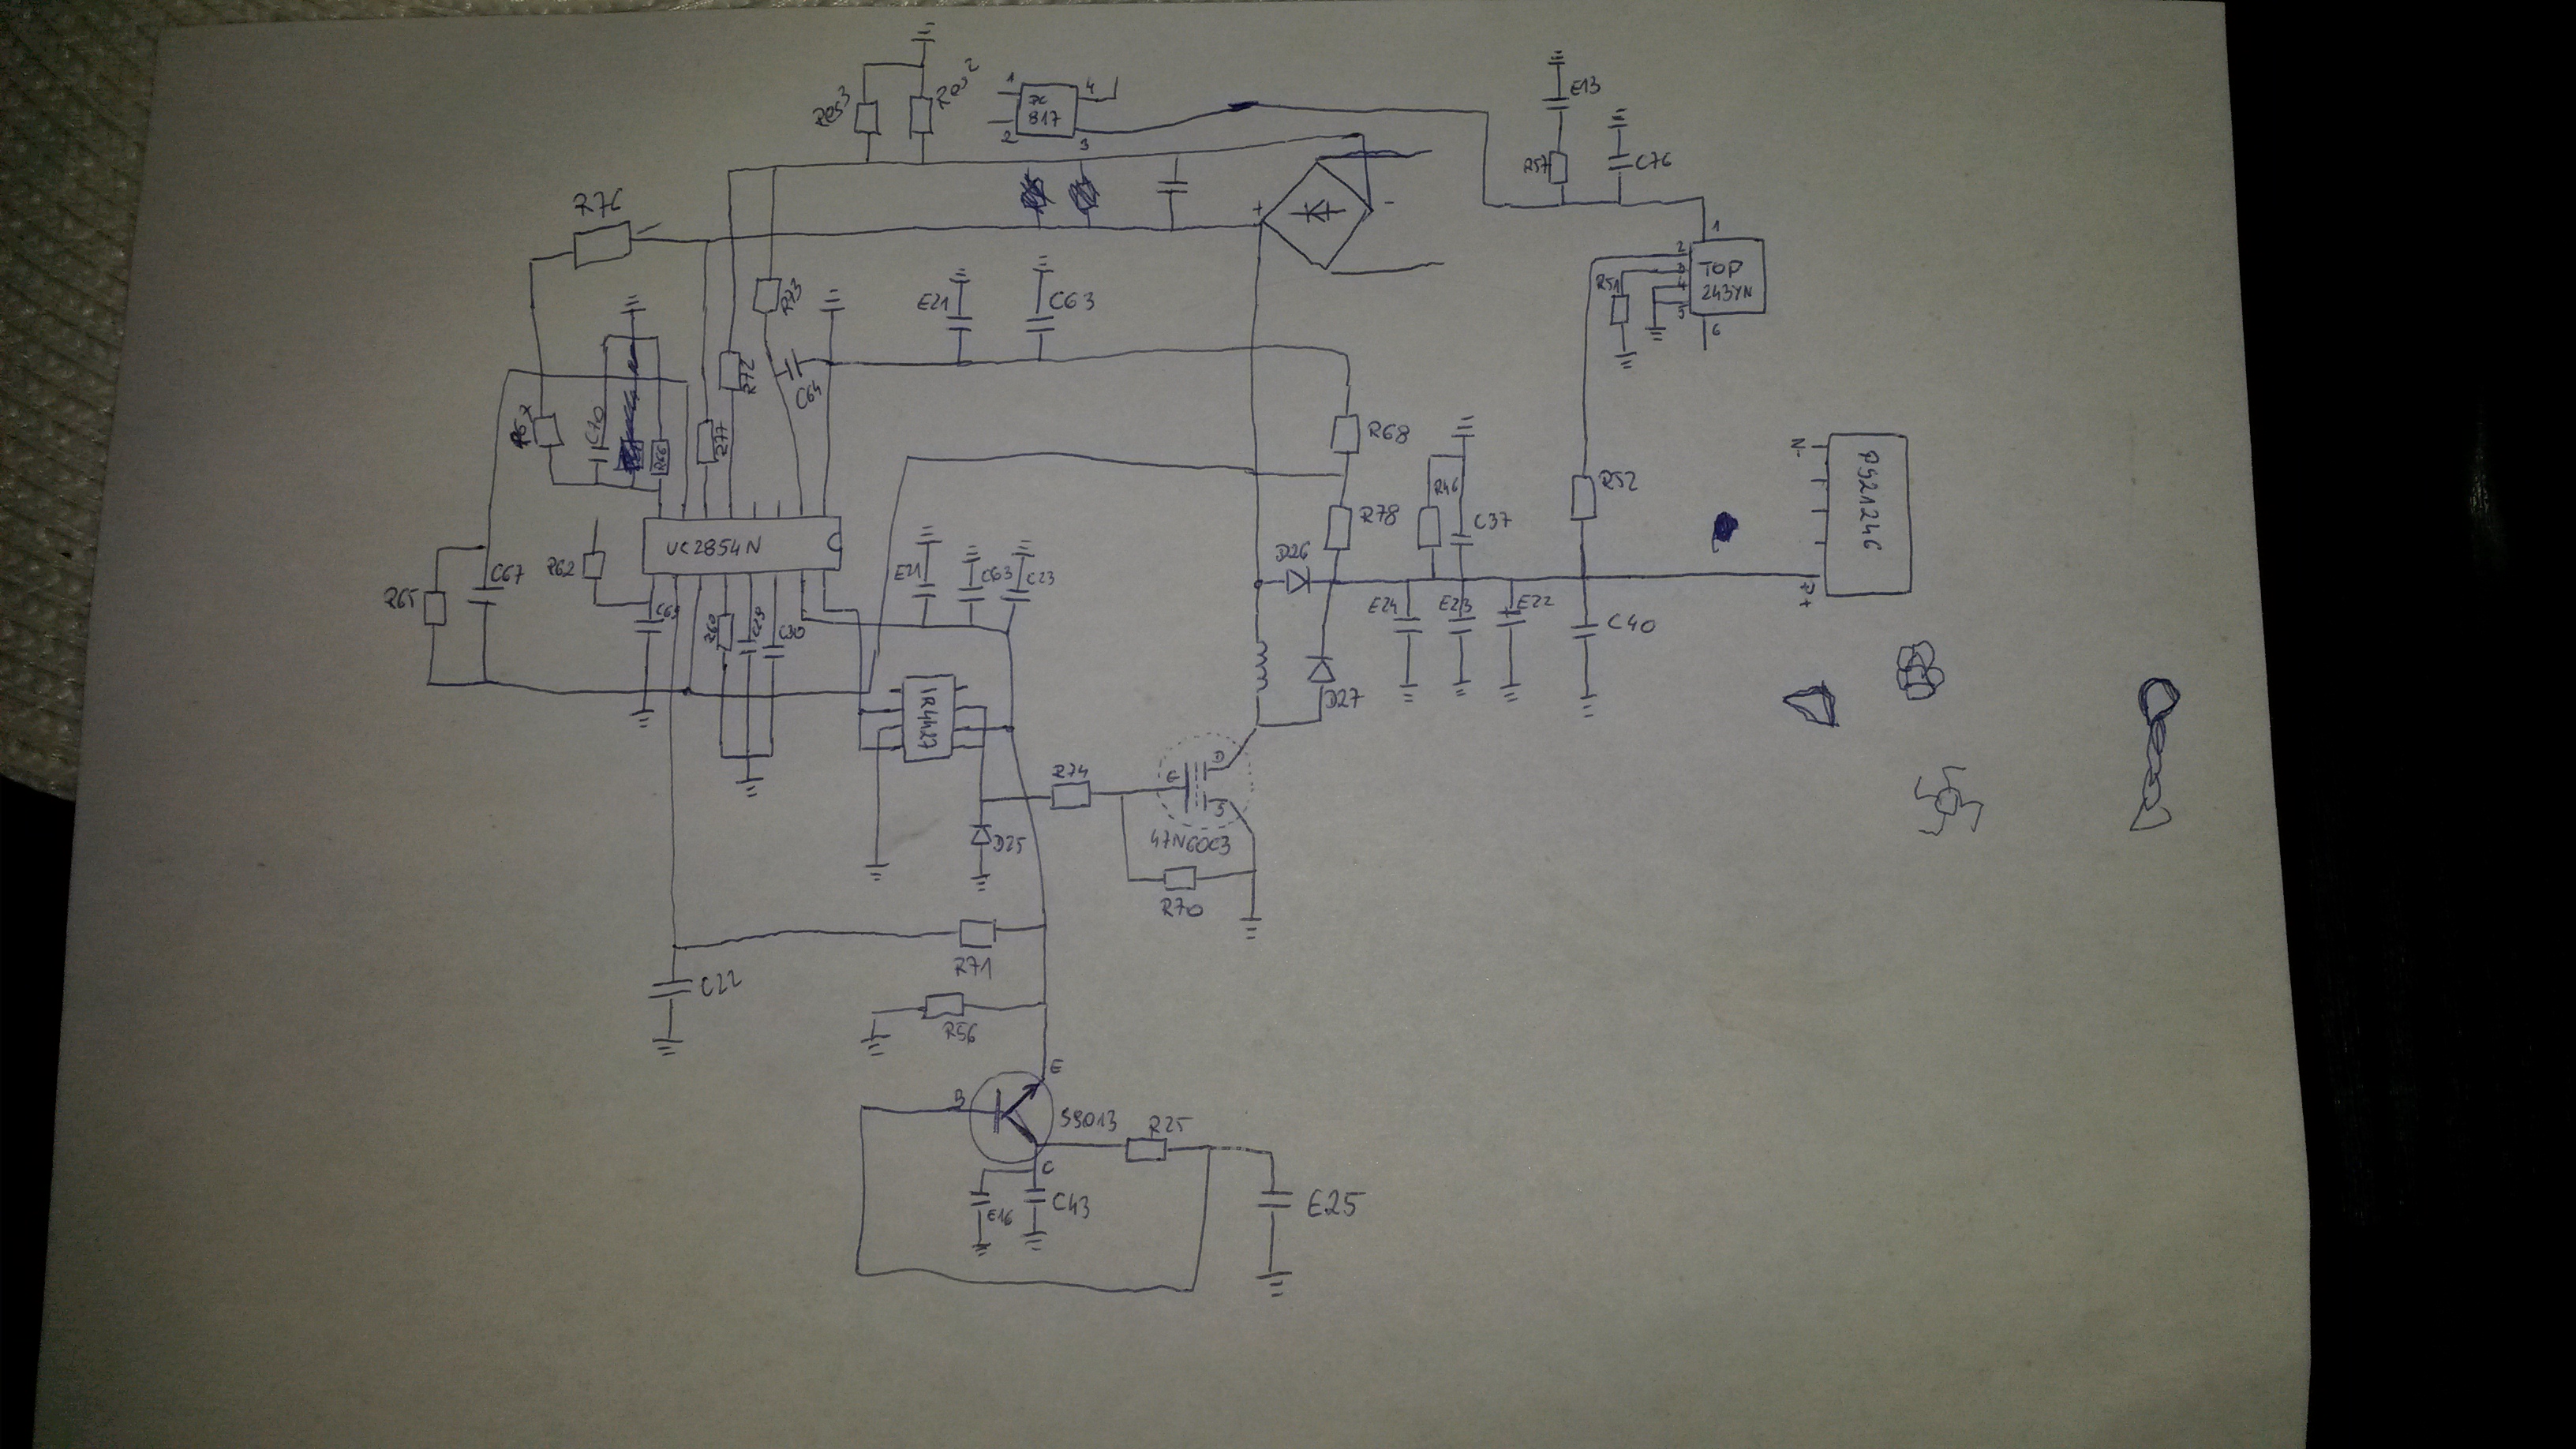 E13
1
4
817
2
3
R57
C76
R76
+
-
1
2
3
4
5
6
TOP
243YN
R51
R73
E21
C63
R72
C64
R77
C70
R66
R68
R46
C37
R78
R52
N-
PS21246
P+
UC2854N
R65
C67
R62
C69
R60
C30
E21
C63
C23
D26
E24
E23
E22
C40
D27
IR4427
R74
G
D
S
47N60C3
D25
R70
R71
C22
R56
E
B
S9013
R25
C
E16
C43
E25